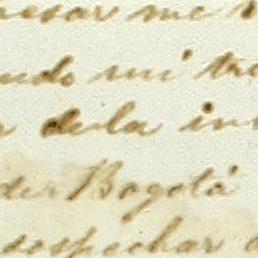 esar me
ndo mi tra
de la in
der Bogotá
sospechar